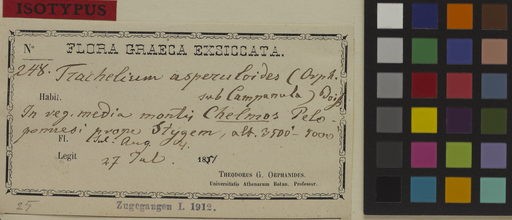 ISOTYPUS
No FLORA GRAECA EXSICCATA.
248. Trachelium asperuloides (Orph.
Habit. sub Campanula) Boiss
In reg. media montis Chelmos Pelo-
ponnesi prope Stygem, alt. 3500-5000'
Fl. Jul. Aug.
Legit 27 Jul. 1851
THEODORUS G. ORPHANIDES.
Universitatis Athenarum Botan. Professor.
25 Zugegangen I. 1912.